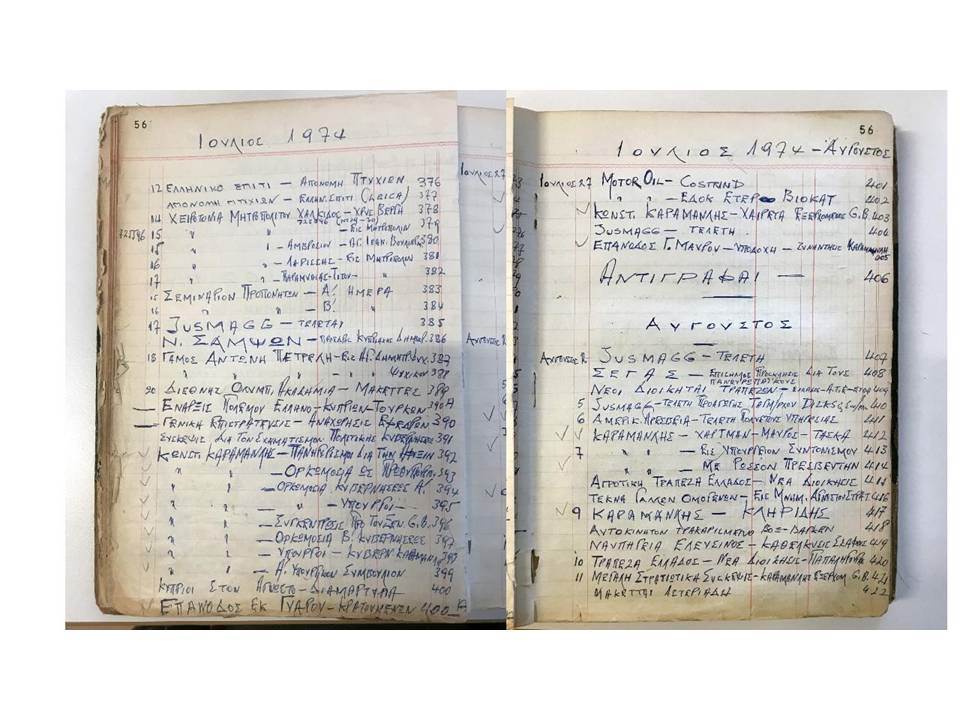 56
ΙΟΥΛΙΟΣ 1974
12 ΕΛΛΗΝΙΚΟ ΣΠΙΤΙ – ΑΠΟΝΟΜΗ ΠΤΥΧΙΩΝ 376
ΑΠΟΝΟΜΗ ΠΤΥΧΙΩΝ – ΕΛΛΗΝ. ΣΠΙΤΙ (Leica) 377
14 ΧΕΙΡΟΤΟΝΙΑ ΜΗΤΡΟΠΟΛΙΤΟΥ ΧΑΛΚΙΔΟΣ – ΧΡΥΣ ΒΕΡΓΗ 378
15 " " – ΕΙΣ ΜΗΤΡΟΠΟΛΙΝ 379
15 " " – ΑΜΒΡΟΣΙΟΥ – ΑΓ. ΙΩΑΝ. 380
16 " " – ΛΑΡΙΣΣΗΣ – ΕΙΣ ΜΗΤΡΟΠΟΛΙΝ 381
17 " " – ΠΑΡΑΜΥΘΙΑΣ " 382
15 ΣΕΜΙΝΑΡΙΟΝ ΠΡΟΠΟΝΗΤΩΝ – Α' ΗΜΕΡΑ 383
16 " " – Β' " 384
17 JUSMAGG – ΤΕΛΕΤΑΙ 385
Ν. ΣΑΜΨΩΝ – ΚΥΠΡΙΑΚΗΣ ΔΗΜΟΚΡ. 386
18 ΓΑΜΟΣ ΑΝΤΩΝΗ ΠΕΤΡΕΛΗ – ΕΙΣ ΑΓ. ΔΗΜΗΤΡΙΟΝ 387
" " " ΨΥΧΙΚΟΥ 388
20 ΔΙΕΘΝΗΣ ΟΛΥΜΠ. ΑΚΑΔΗΜΙΑ – ΜΑΚΕΤΤΕΣ 389
ΕΝΑΡΞΙΣ ΠΟΛΕΜΟΥ ΕΛΛΗΝΟ – ΚΥΠΡΙΩΝ – ΤΟΥΡΚΩΝ 390Α
ΓΕΝΙΚΗ ΕΠΙΣΤΡΑΤΕΥΣΙΣ – ΑΝΑΧΩΡΗΣΙΣ ΕΦΕΔΡΩΝ 390
ΣΥΣΚΕΨΙΣ ΔΙΑ ΤΟΝ ΣΧΗΜΑΤΙΣΜΟΝ ΠΟΛΙΤΙΚΗΣ ΚΥΒΕΡΝΗΣΕΩΣ 391
ΚΩΝΣΤ. ΚΑΡΑΜΑΝΛΗΣ – ΠΑΝΗΓΥΡΙΣΜΟΙ ΔΙΑ ΤΗΝ ΑΦΙΞΙΝ 392
" " – ΟΡΚΩΜΟΣΙΑ ΩΣ ΠΡΩΘΥΠΟΥΡΓ. 393
" " – ΟΡΚΩΜΟΣΙΑ ΚΥΒΕΡΝΗΣΕΩΣ Α' 394
" " – " – ΥΠΟΥΡΓΟΙ – 395
" " – ΣΥΓΚΕΝΤΡΩΣΙΣ ΠΡΟ ΤΟΥ ΞΕΝ. G.B. 396
" " – ΟΡΚΩΜΟΣΙΑ Β. ΚΥΒΕΡΝΗΣΕΩΣ 397
" " – ΥΠΟΥΡΓΟΙ – ΚΥΒΕΡΝ
" " – Α'. ΥΠΟΥΡΓΙΚΟΝ ΣΥΜΒΟΥΛΙΟΝ 399
ΚΥΠΡΙΟΙ ΣΤΟΝ ΑΓΝΩΣΤΟ – ΔΙΑΜΑΡΤΥΡΙΑ 400
ΕΠΑΝΟΔΟΣ ΕΚ ΓΥΑΡΟΥ – ΚΡΑΤΟΥΜΕΝΩΝ 400
56
ΙΟΥΛΙΟΣ 1974 – ΑΥΓΟΥΣΤΟΣ
ΙΟΥΛΙΟΣ 27 MOTOR OIL – 401
– ΕΔΟΚ ΕΤΕΡ ΒΙΟΚΑΤ 402
ΚΩΝΣΤ. ΚΑΡΑΜΑΝΛΗΣ – ΧΑΙΡΕΤΑ G.B. 403
JUSMAGG – ΤΕΛΕΤΗ 404
ΕΠΑΝΟΔΟΣ Γ. ΜΑΥΡΟΥ – ΥΠΟΔΟΧΗ – ΣΥΝΑΝΤΗΣΙΣ ΚΑΡΑΜΑΝΛΗ 405
ΑΝΤΙΓΡΑΦΑΙ — 406
ΑΥΓΟΥΣΤΟΣ
ΑΥΓΟΥΣΤΟΣ 2. JUSMAGG – ΤΕΛΕΤΗ 407
ΣΕΓΑΣ – ΕΠΙΣΗΜΟΣ ΠΡΟΣΚΛΗΣΙΣ ΔΙΑ ΤΟΥΣ ΠΑΝΕΥΡΩΠΑΙΚΟΥΣ 408
ΝΕΟΙ ΔΙΟΙΚΗΤΑΙ ΤΡΑΠΕΖΩΝ – 409
5 JUSMAGG – ΤΕΛΕΤΗ ΠΡΟΑΓΩΓΗΣ ΤΑΓΜ/ΡΧΟΥ 410
6 ΑΜΕΡΙΚ. ΠΡΕΣΒΕΙΑ – ΤΕΛΕΤΗ ΠΟΛΥΕΤΟΥΣ ΥΠΗΡΕΣΙΑΣ 411
ΚΑΡΑΜΑΝΛΗΣ – ΧΑΡΤΜΑΝ – ΜΑΥΡΟΣ – ΤΑΣΚΑ 412
7 " " – ΕΙΣ ΥΠΟΥΡΓΕΙΟΝ ΣΥΝΤΟΝΙΣΜΟΥ 413
" " – ΜΕ ΡΩΣΣΟΝ ΠΡΕΣΒΕΥΤΗΝ 414
ΑΓΡΟΤΙΚΗ ΤΡΑΠΕΖΑ ΕΛΛΑΔΟΣ – ΝΕΑ ΔΙΟΙΚΗΣΙΣ
ΤΕΚΝΑ ΓΑΛΛΩΝ ΟΜΟΓΕΝΩΝ – ΕΙΣ ΜΝΗΜ. ΑΓΝΩΣΤΟΥ ΣΤΡΑΤ 416
9 ΚΑΡΑΜΑΝΛΗΣ – ΚΛΗΡΙΔΗΣ 417
ΑΥΤΟΚΙΝΗΤΟΝ 418
ΝΑΥΠΗΓΕΙΑ ΕΛΕΥΣΙΝΟΣ – ΚΑΘΕΛΚΥΣΙΣ 419
10 ΤΡΑΠΕΖΑ ΕΛΛΑΔΟΣ – ΝΕΑ ΔΙΟΙΚΗΣΙΣ – 420
11 ΜΕΓΑΛΗ ΣΤΡΑΤΙΩΤΙΚΗ ΣΥΣΚΕΨΙΣ – ΚΑΡΑΜΑΝΛΗΣ G.B. 421
ΜΑΚΕΤΤΑΙ ΑΣΤΕΡΙΑΔΗ 422